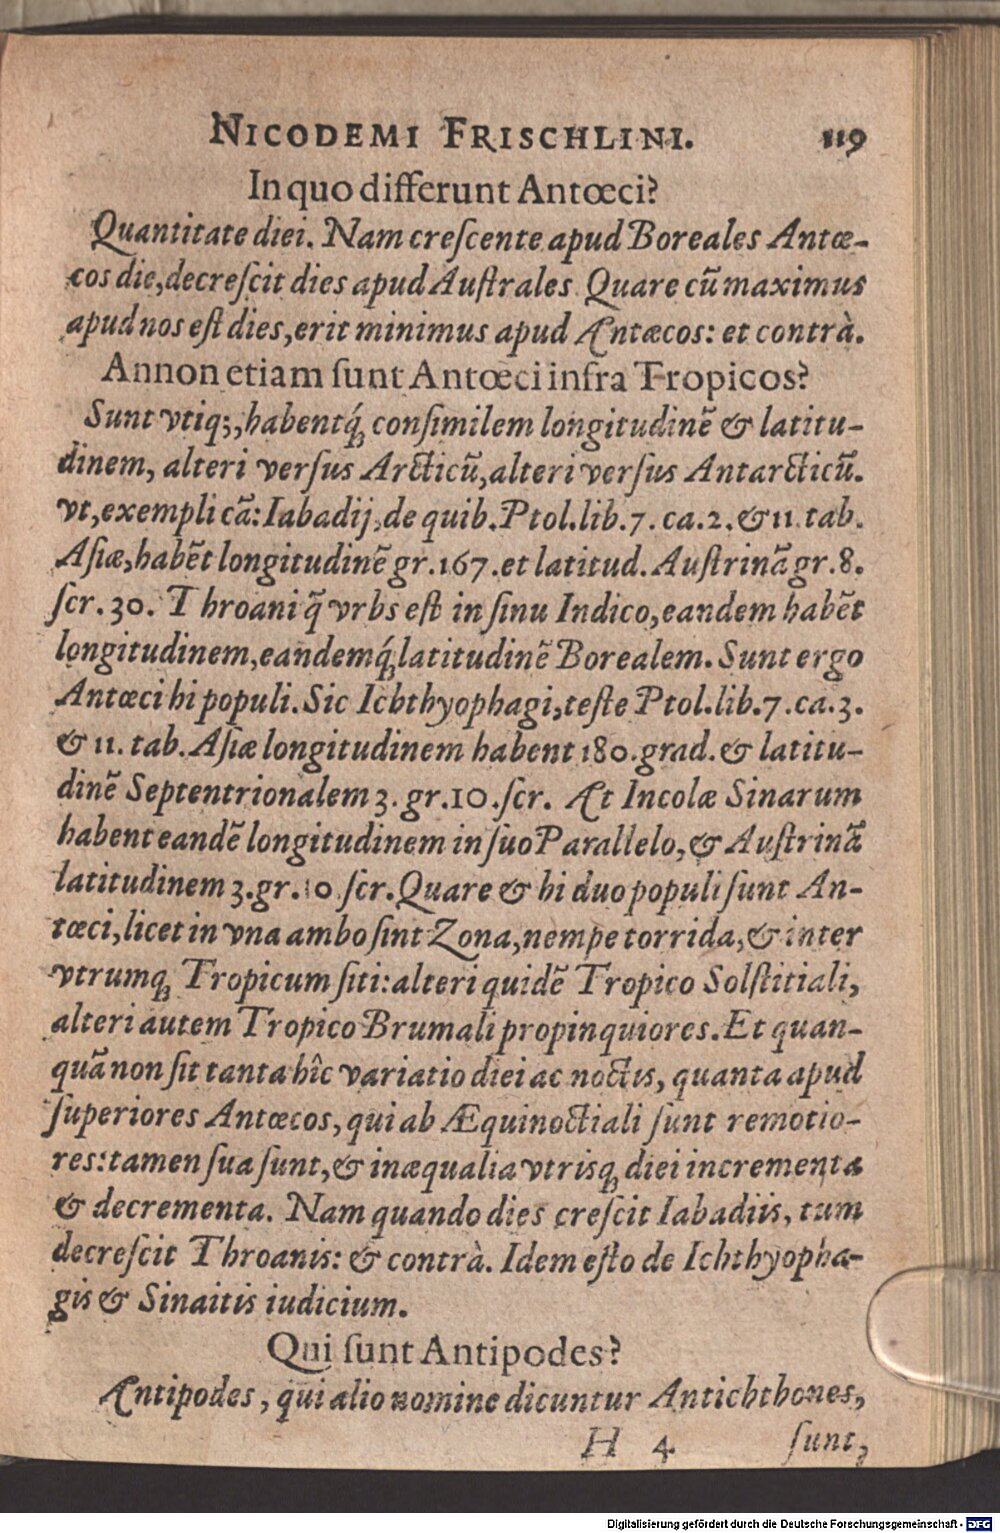 NICODEMI FRISCHLINI. 119
In quo differunt Antœci?
Quantitate diei. Nam creſcente apud Boreales Antœ-
cos die, decreſcit dies apud Auſtrales Quare cũ maximus
apud nos eſt dies, erit minimus apud Antæcos: et contrà.
Annon etiam ſunt Antœci infra Tropicos?
Sunt vtiq;, habentq́; conſimilem longitudinẽ & latitu-
dinem, alteri verſus Arcticũ, alteri verſus Antarcticũ.
vt, exempli cã: Iabadij, de quib. Ptol. lib. 7. ca. 2. & 11. tab.
Aſiæ, habẽt longitudinẽ gr. 167. et latitud. Auſtrinã gr. 8.
ſcr. 30. Throani q̃ vrbs eſt in ſinu Indico, eandem habẽt
longitudinem, eandemq́; latitudinẽ Borealem. Sunt ergo
Antœci hi populi. Sic Ichthyophagi, teſte Ptol. lib. 7. ca. 3.
& 11. tab. Aſiæ longitudinem habent 180. grad. & latitu-
dinẽ Septentrionalem 3. gr. 10. ſcr. At Incolæ Sinarum
habent eandẽ longitudinem in ſuo Parallelo, & Auſtrinã
latitudinem 3. gr. 10 ſcr. Quare & hi duo populi ſunt An-
tœci, licet in vna ambo ſint Zona, nempe torrida, & inter
vtrumq; Tropicum ſiti: alteri quidẽ Tropico Solſtitiali,
alteri autem Tropico Brumali propinquiores. Et quan-
quã non ſit tanta hîc variatio diei ac noctis, quanta apud
ſuperiores Antœcos, qui ab Æquinoctiali ſunt remotio-
res: tamen ſua ſunt, & inæqualia vtrisq; diei incrementa
& decrementa. Nam quando dies creſcit Iabadiis, tum
decreſcit Throanis: & contrà. Idem eſto de Ichthyopha-
gis & Sinaitis iudicium.
Qui ſunt Antipodes?
Antipodes, qui alio nomine dicuntur Antichthones,
H 4 ſunt,
Digitalisierung gefördert durch die Deutsche Forschungsgemeinschaft - DFG